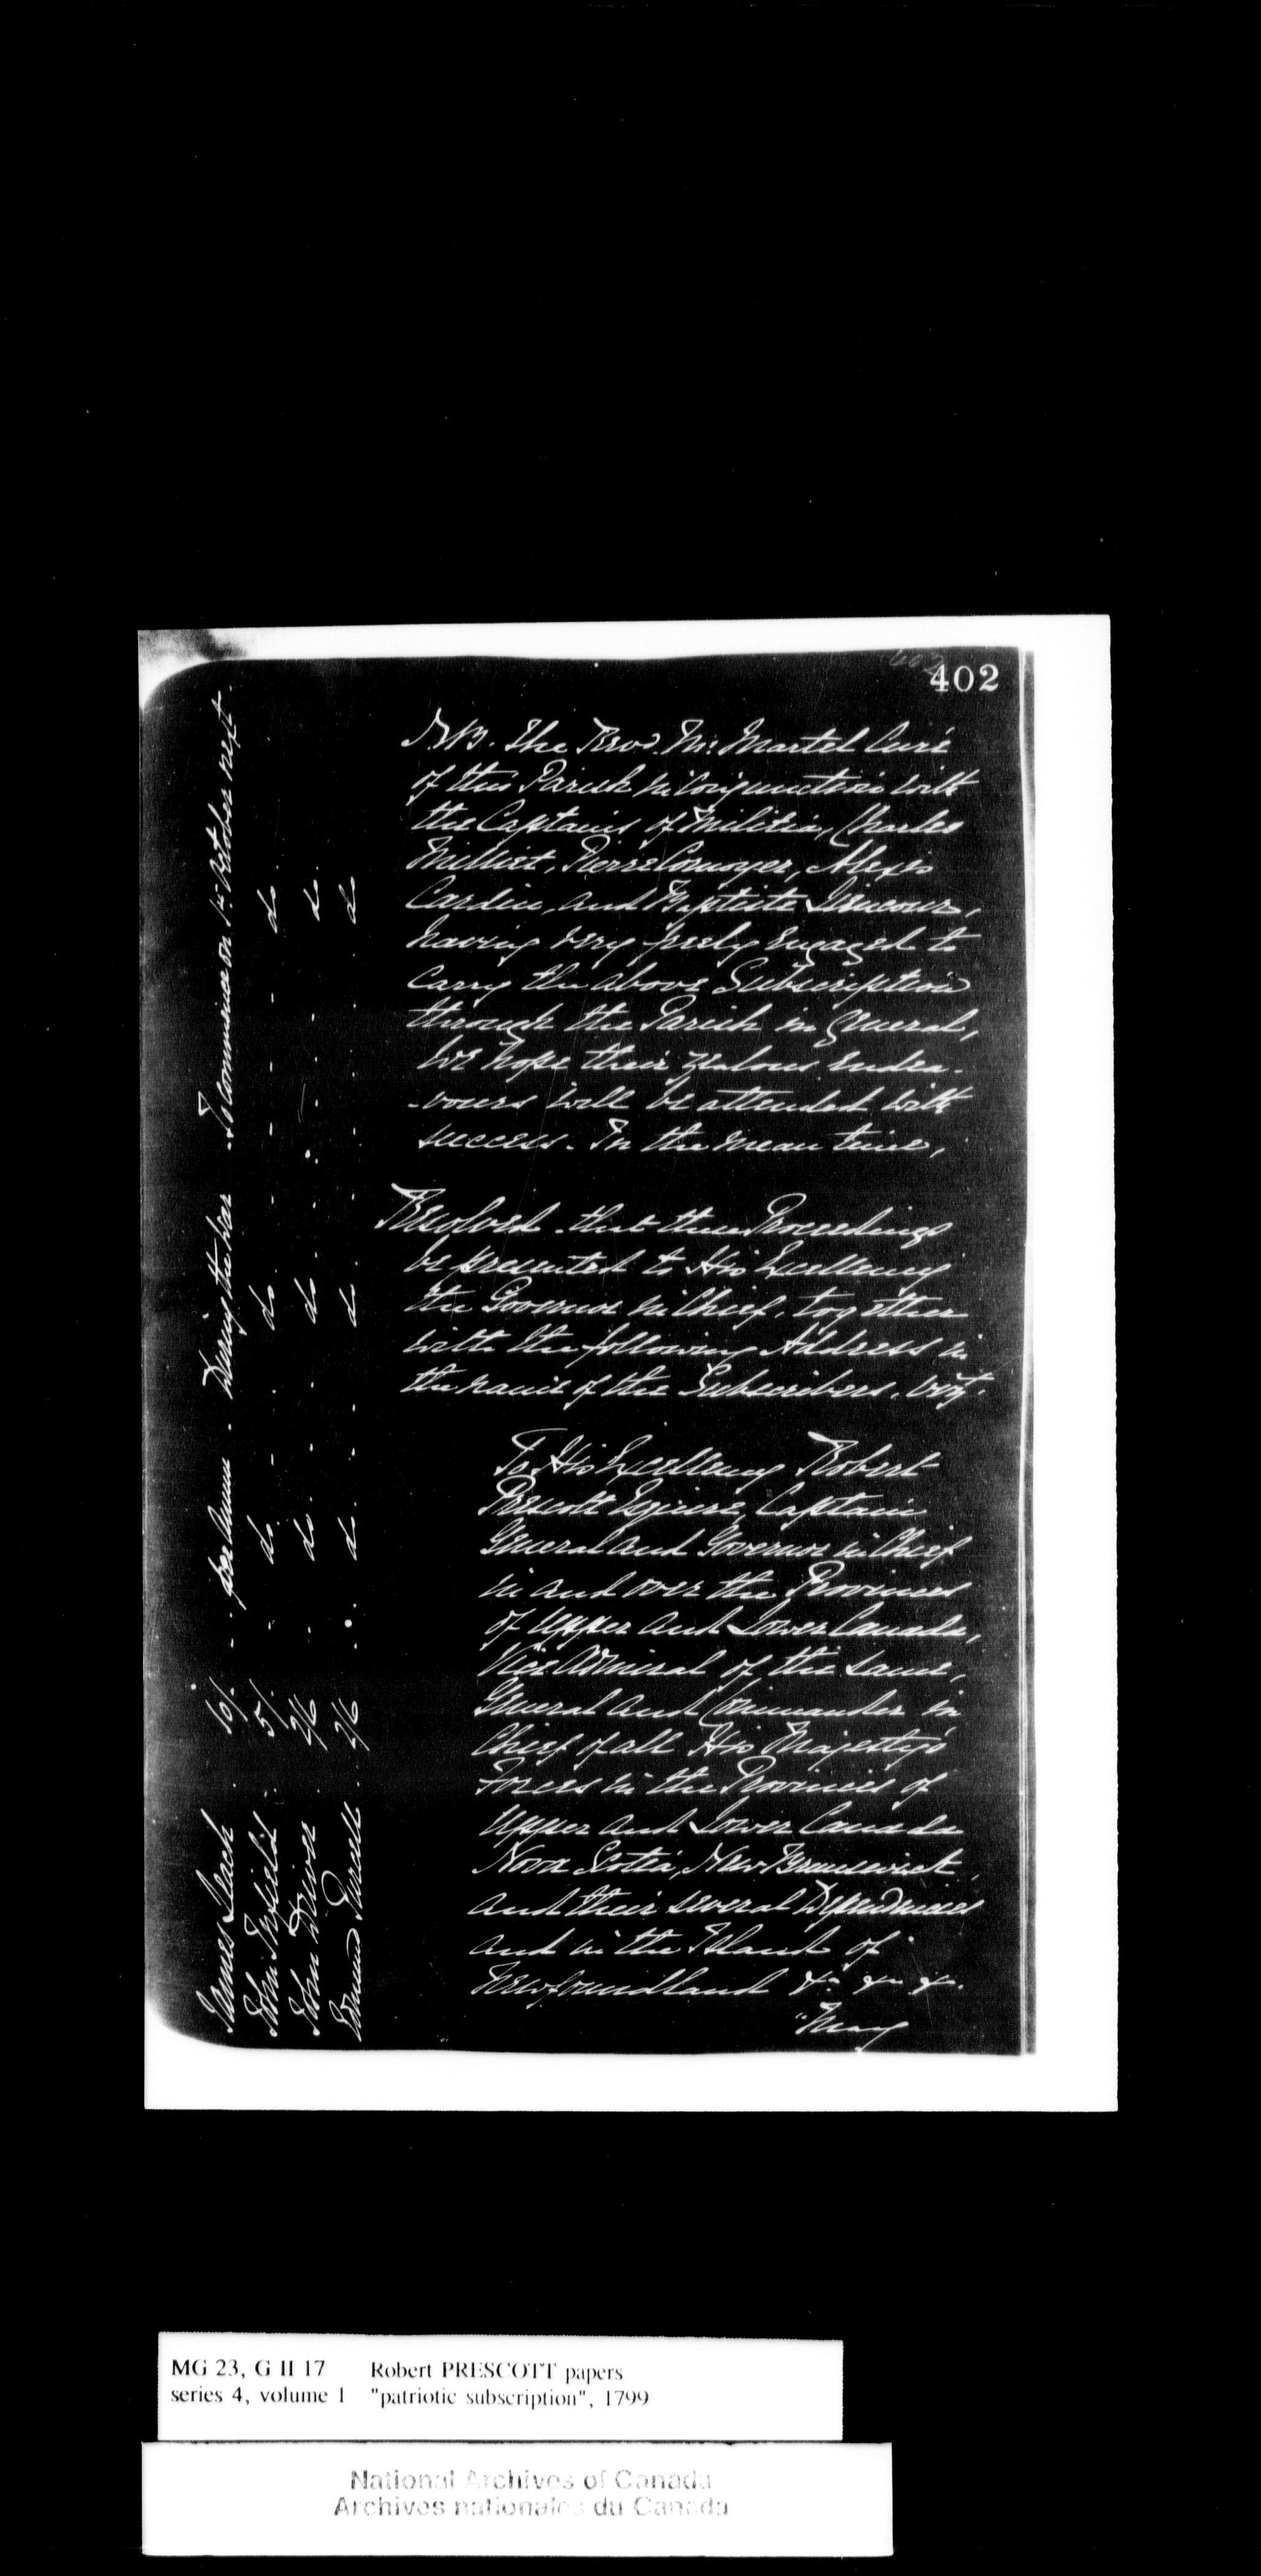 402
James Leach . 10/. - per Annum . During the War . To Commence on 1st October next.
John 5/. - do. - do. - do.
John 2/6 . do. . do. . do.
Edmund Purcell . 2/6 . do. . do. . do
N.B. The Revd. Mr. Martel Curé
of this Parish in Conjunction with
the Captains of Militia, Charles
Milliet, Pierre Cournoyer, Alexis
Cardin, and Baptiste
having very freely engaged to
carry the above Subscription
through the Parish in general,
we hope their zealous endea-
-vours will be attended with
success. In the mean time,
Resolved - that these Proceedings
be presented to His Excellency
the Governor in Chief, together
with the following Address in
the name of the Subscribers. vizt.
To His Excellency Robert
Prescott Esquire, Captain
General and Governor in Chief
in and over the Provinces
of Upper and Lower Canada,
Vice Admiral of the same,
General and Commander in
Chief of all His Majesty's
Forces in the Provinces of
Upper and Lower Canada
Nova Scotia, New Brunswick,
and their several Dependencies
and in the Island of
Newfoundland &c &c &c.
"May
MG 23, G II 17 Robert PRESCOTT papers
series 4, volume 1 "patriotic subscription", 1799
National Archives of Canada
Archives nationales du Canada